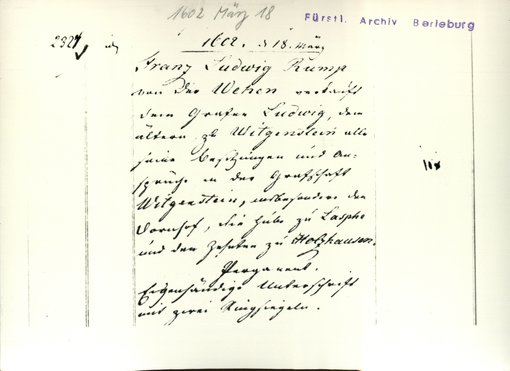 1602 März 18
Fürstl. Archiv Berleburg
1602. d 18. März
Franz Ludwig Rump
von Der Wehen verkauft
dem Grafen Ludwig, dem
ältern zu Witgenstein alle
seine Besitzungen und An-
sprüche in der Grafschaft
Witgenstein, insbesondere den
Vornhof, die Hube zu Lasphe
und den Zehnten zu Holzhausen.
Pergament.
Eigenhändige Unterschrift
mit zwei Ringsiegeln.